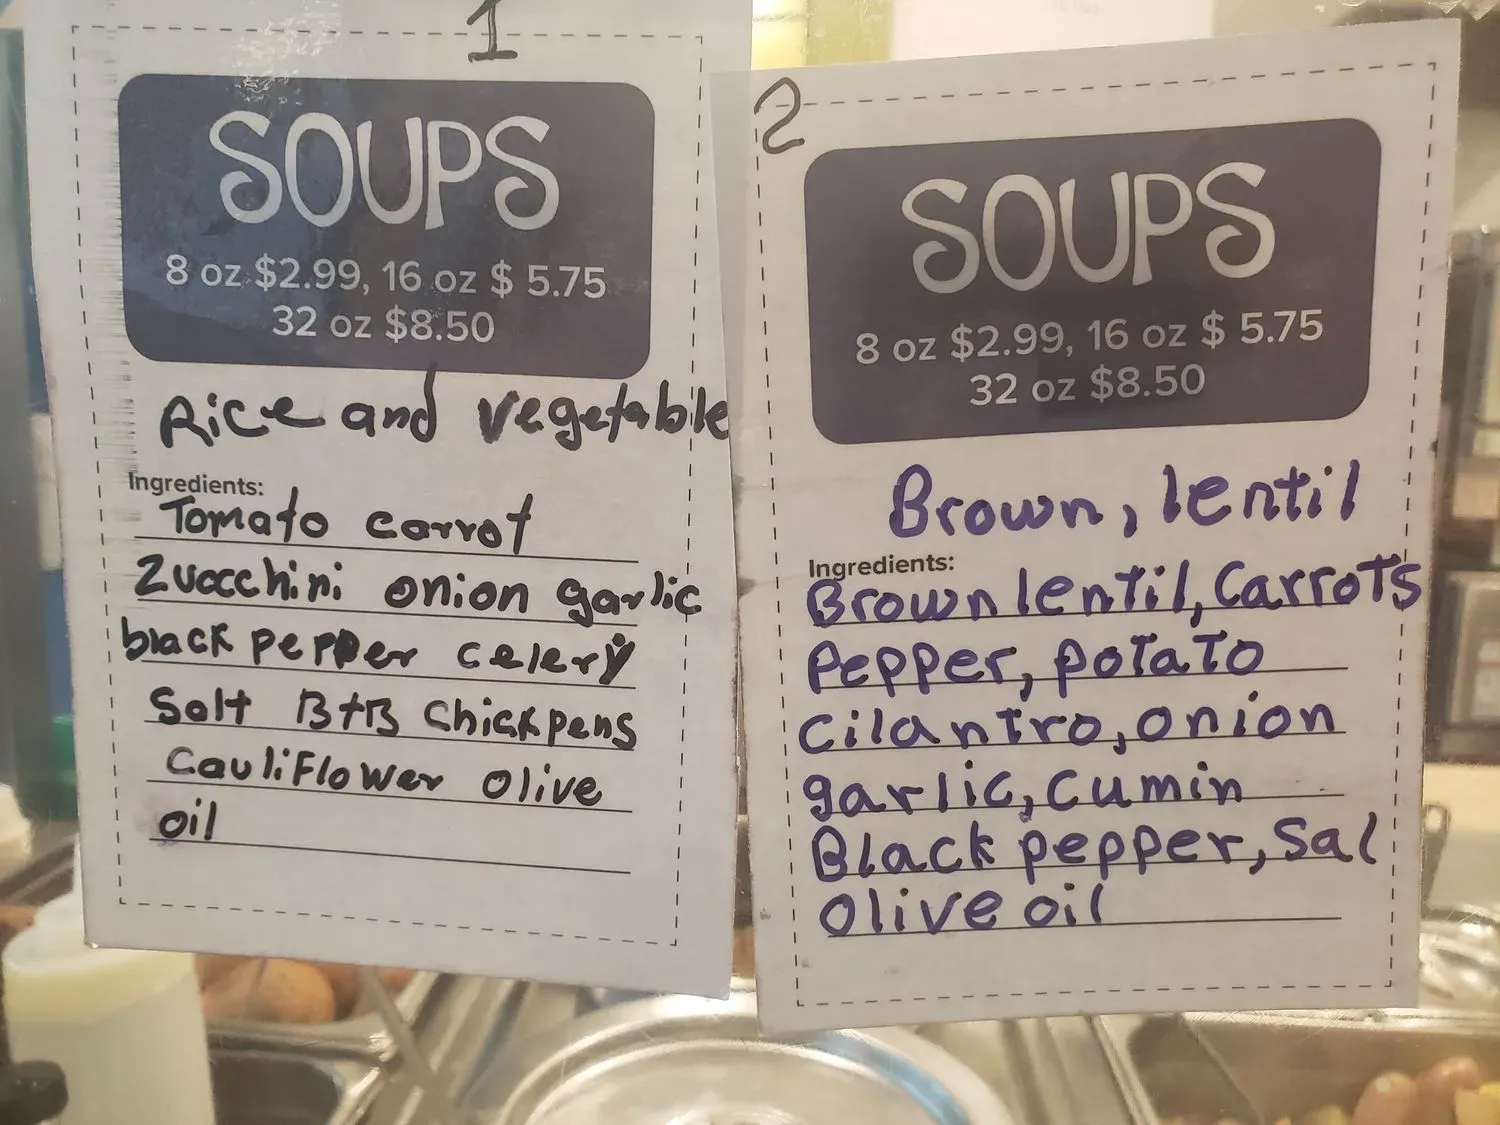 1
SOUPS
8 oz $2.99, 16 oz $ 5.75
32 oz $8.50
Rice and vegetable
Ingredients:
Tomato carrot
Zuocchini onion garlic
black pepper celery
Salt B+B Chickpens
Cauliflower olive
oil
2
SOUPS
8 oz $2.99, 16 oz $ 5.75
32 oz $8.50
Brown, lentil
Ingredients:
Brown lentil, Carrots
Pepper, potato
Cilantro, onion
garlic, Cumin
Black pepper, Sal
Olive oil